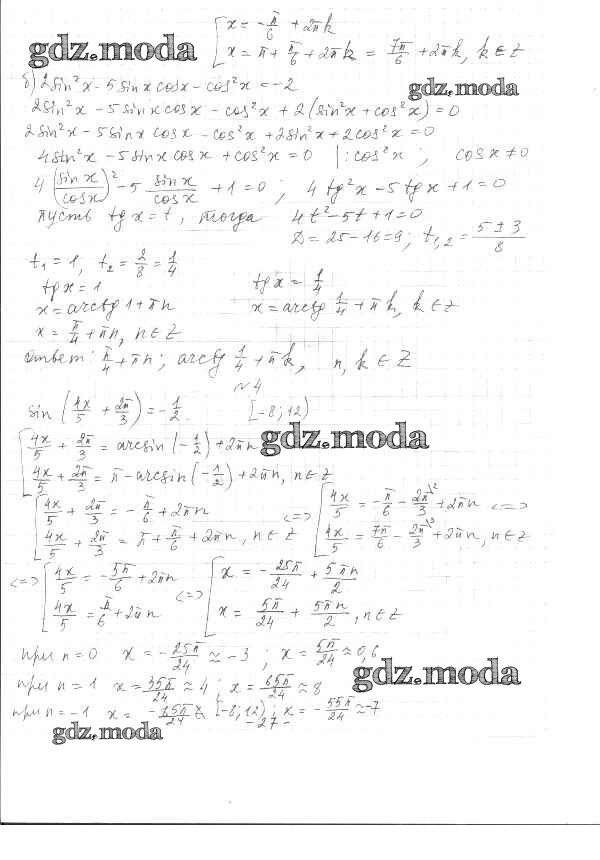 x = -π/6 + 2πk
x = π + π/6 + 2πk = 7π/6 + 2πk, k ∈ Z
gdz.moda
б) 2sin²x - 5sinx cosx - cos²x = -2
gdz.moda
2sin²x - 5sinx cosx - cos²x + 2(sin²x + cos²x) = 0
2sin²x - 5sinx cosx - cos²x + 2sin²x + 2cos²x = 0
4sin²x - 5sinx cosx + cos²x = 0 |:cos²x ; cosx ≠ 0
4(sinx/cosx)² - 5 sinx/cosx + 1 = 0 ; 4tg²x - 5tgx + 1 = 0
Пусть tgx = t, тогда 4t² - 5t + 1 = 0
D = 25 - 16 = 9; t₁,₂ = (5 ± 3)/8
t₁ = 1, t₂ = 2/8 = 1/4
tgx = 1 tgx = 1/4
x = arctg1 + πn x = arctg 1/4 + πk, k ∈ Z
x = π/4 + πn, n ∈ Z
Ответ: π/4 + πn; arctg 1/4 + πk, n, k ∈ Z
№4
sin(4x/5 + 2π/3) = -1/2. [-8; 12)
4x/5 + 2π/3 = arcsin(-1/2) + 2πn
gdz.moda
4x/5 + 2π/3 = π - arcsin(-1/2) + 2πn, n ∈ Z
4x/5 + 2π/3 = -π/6 + 2πn <=> 4x/5 = -π/6 - 2π/3 + 2πn <=>
4x/5 + 2π/3 = π + π/6 + 2πn, n ∈ Z 4x/5 = 7π/6 - 2π/3 + 2πn, n ∈ Z
<=> 4x/5 = -5π/6 + 2πn <=> x = -25π/24 + 5πn/2
4x/5 = π/2 + 2πn x = 5π/24 + 5πn/2, n ∈ Z
при n = 0 x = -25π/24 ≈ -3 ; x = 5π/24 ≈ 0,6
gdz.moda
при n = 1 x = 35π/24 ≈ 4 ; x = 65π/24 ≈ 8
при n = -1 x = [-8; 12) ; x = -55π/24 ≈ -7
gdz.moda
- 27 -